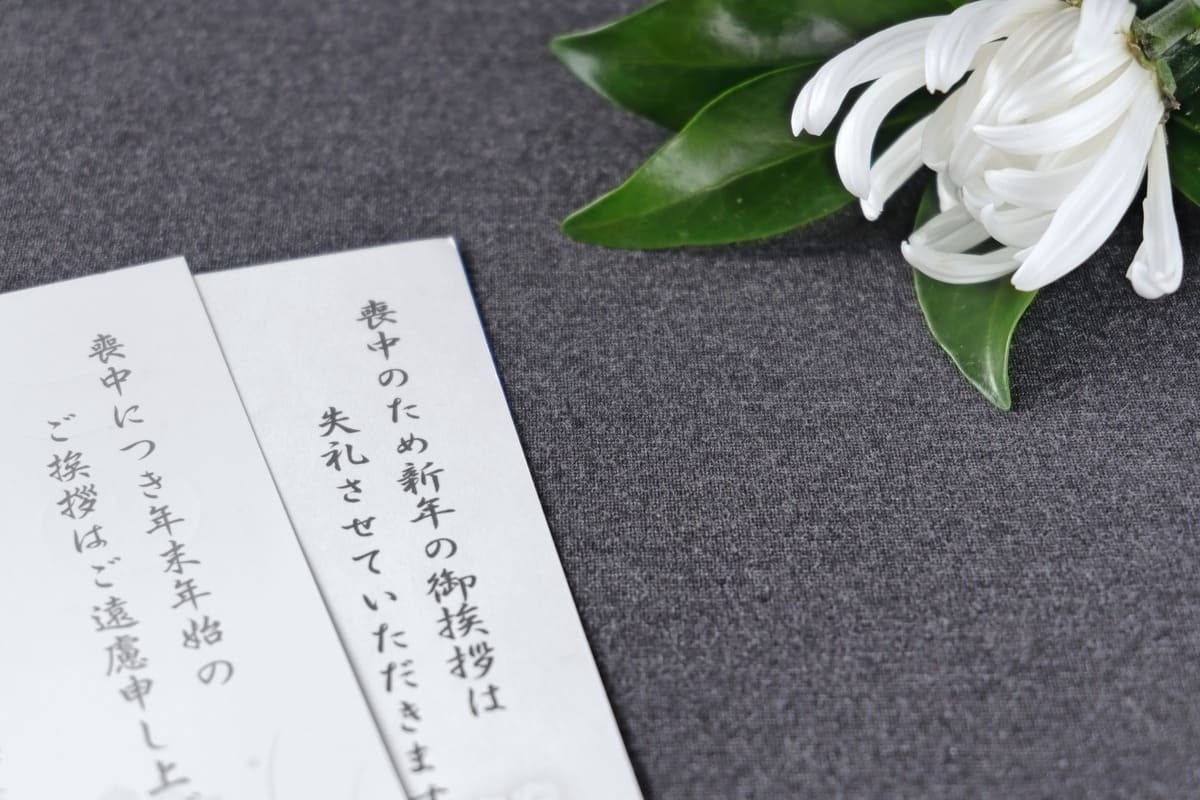 喪中のため新年の御挨拶は
失礼させていただきます
喪中につき年末年始の
ご挨拶はご遠慮申し上